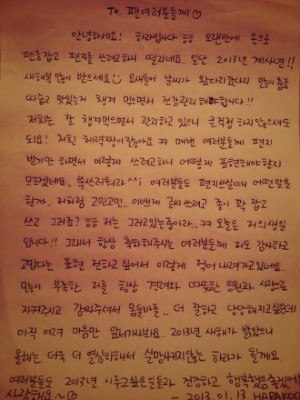 To. 팬여러분들께
안녕하세요! 하라입니다 ㅎㅎ 오랜만에 손으로
펜을잡고 편지를 쓰려고하니 떨리네요. 일단 2013년 계사년!!
새해복많이 받으세요 요새들어 날씨가 왔다리갔다리 많이춥죠
따숩고 맛있는거 챙겨 먹으면서 건강관리해야합니다!!
저희는 잘 챙겨먹으면서 관리하고 있으니 큰걱정 하지않으셔도
되요! 저흰 체력짱이잖아요 ㅋㅋ 매번 여러분들께 편지
받기만 하면서 이렇게 쓰려고하니 어떻게 표현해야할지
모르겠네요.. 쑥쓰러워라^^; 여러분들도 편지쓰실때 어떤말을
할까. 저처럼 고민고민.. 이번게 글씨쓰고 종이 꽉 잡고
쓰고 그러죠? ㅎㅎ 저는 그러고있는중이라.. ㅋㅋ 오늘은 저의생일
입니다!! 그래서 항상 축하해주시는 여러분들께 저도 감사하고
고맙다는 표현 전하고싶어서 이렇게 적어 내려가고있네요
많이 부족한 저를 항상 격려와 따뜻한 응원과 사랑으로
지켜주시고 감싸주셔서 몸둘바를.. 더 잘하고 당당해지고싶은데
아직 여려 마음만 앞서가나봐요.. 2013년 새해가 밝았으니
올해는 더욱 더 열심히해서 실망시켜지않는 하라가 될게요.
여러분들도 2013년 이루고싶은일들과 건강하고 행복함만 즐겼으면
사랑해요~
- 2013. 01. 13 HARA